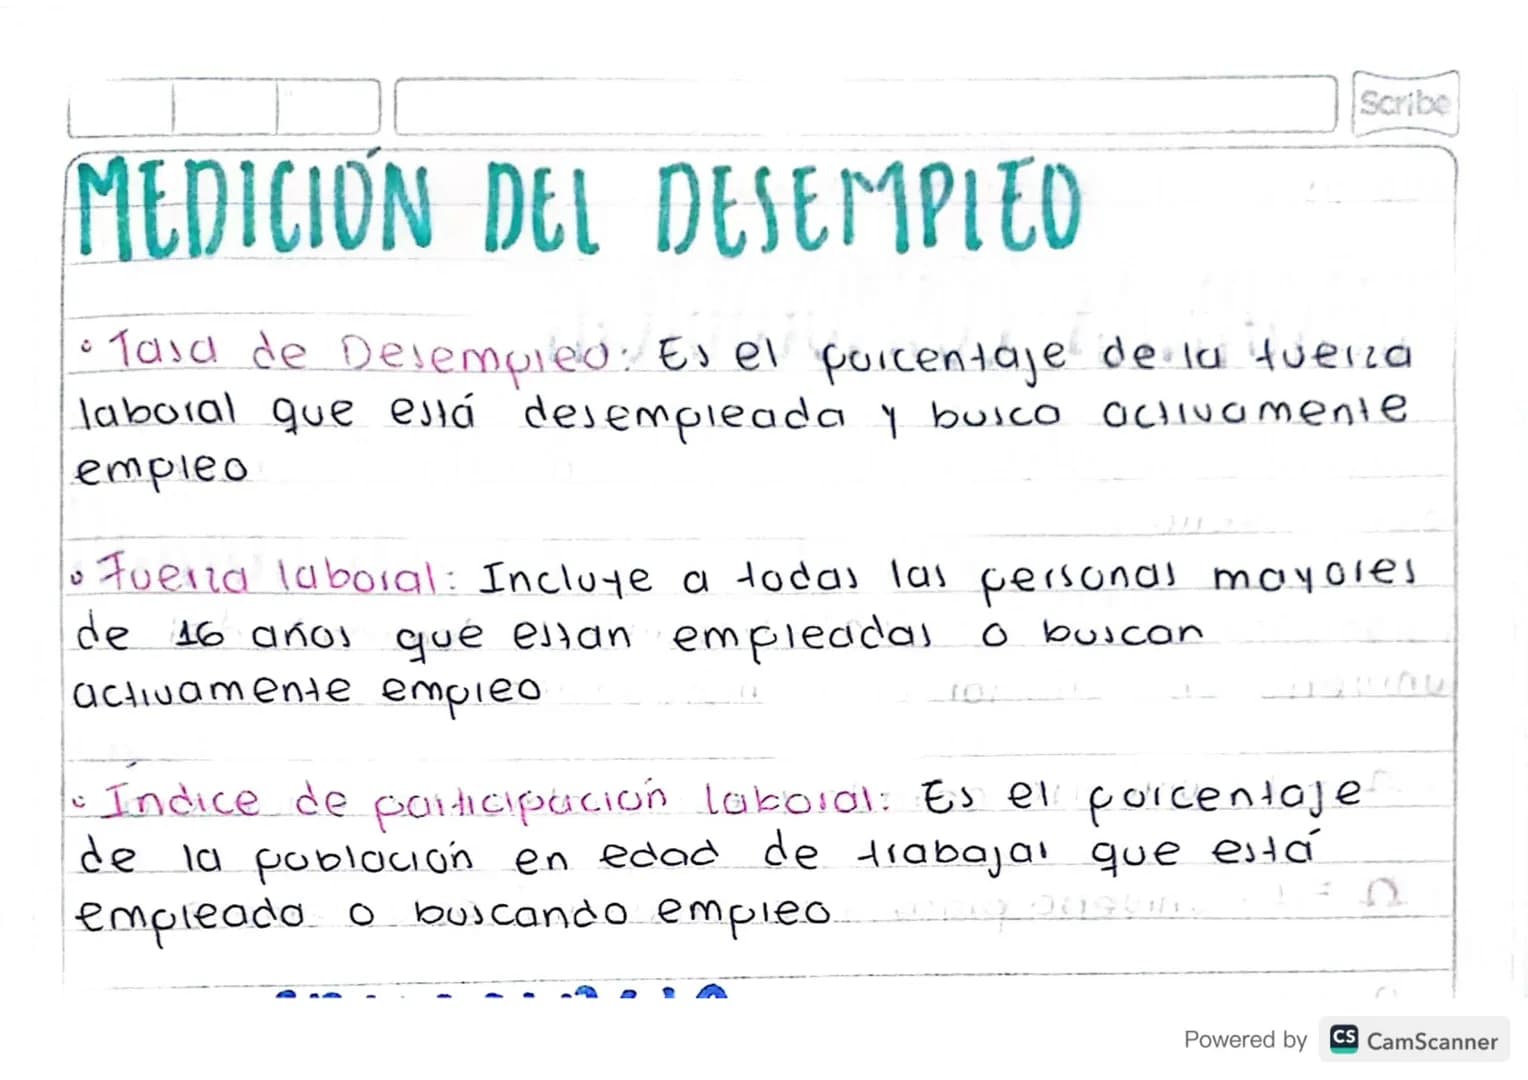 Scribe
MEDICIÓN DEL DESEMPLEO
• Tasa de Desempleo: Es el porcentaje de la fuerza
laboral que está desempleada y busca activamente
empleo
• Fuerza laboral: Incluye a todas las personas mayores
de 16 años que estan empleadas o buscan
activamente empleo
• Índice de participación laboral: Es el porcentaje
de la población en edad de trabajar que está
empleada o buscando empleo
Powered by CS CamScanner